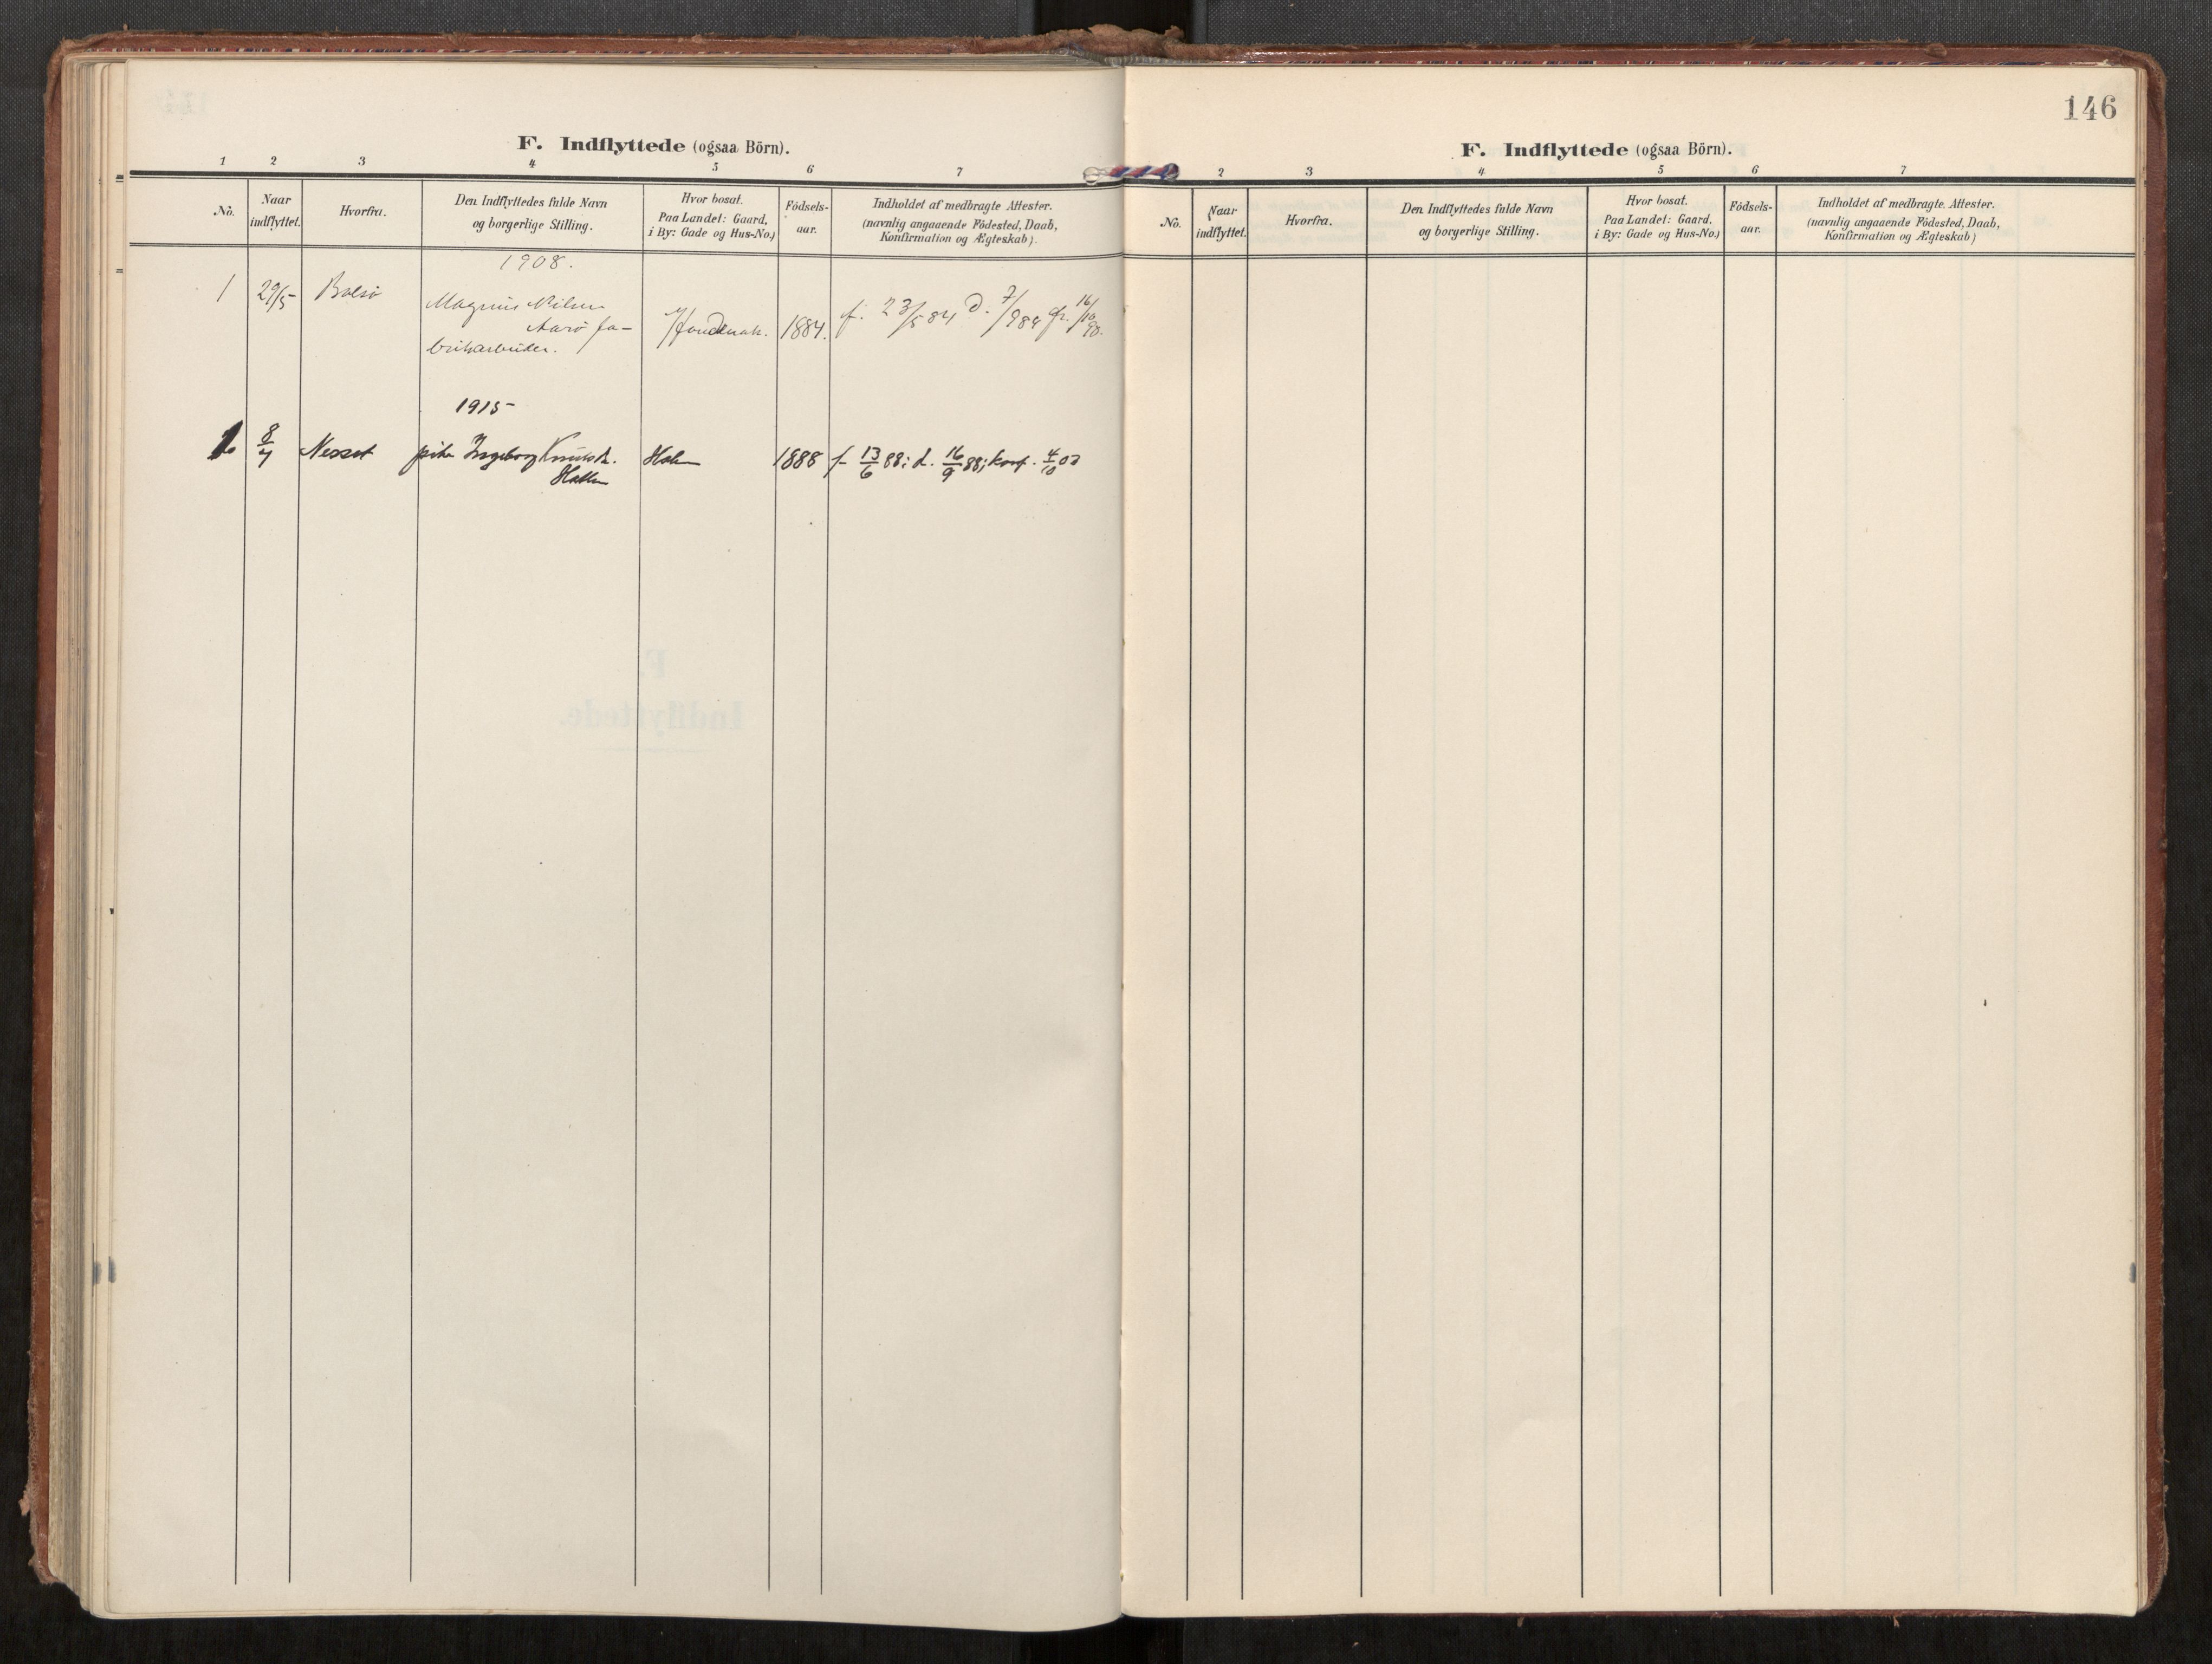 F. Indflyttede (ogsaa Börn).
1 2 3 4 5 6 7
No. Naar indflyttet. Hvorfra. Den Indflyttedes fulde Navn og borgerlige Stilling. Hvor bosat. Paa Landet: Gaard, i By: Gade og Hus-No.) Födsels-aar. Indholdet af medbragte Attester. (navnlig angaaende Födested, Daab, Konfirmation og Ægteskab).
1908.
1 29/5 Bolsö Magnus Nilsen
Aarö fa-
brikarbeider. 1884. f. 23/5 84 d. 7/9 84 16/10 98.
1915
1. 8/4 Nesset pike Ingeborg Knutsd. 1888 f. 13/6 88; d. 16/9 88; konf. 4/10 03
146
F. Indflyttede (ogsaa Börn).
2 3 4 5 6 7
No. Naar indflyttet. Hvorfra. Den Indflyttedes fulde Navn og borgerlige Stilling. Hvor bosat. Paa Landet: Gaard, i By: Gade og Hus-No.) Födsels-aar. Indholdet af medbragte Attester. (navnlig angaaende Födested, Daab, Konfirmation og Ægteskab)